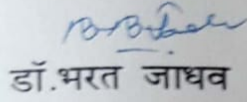 डॉ.भरत जाधव